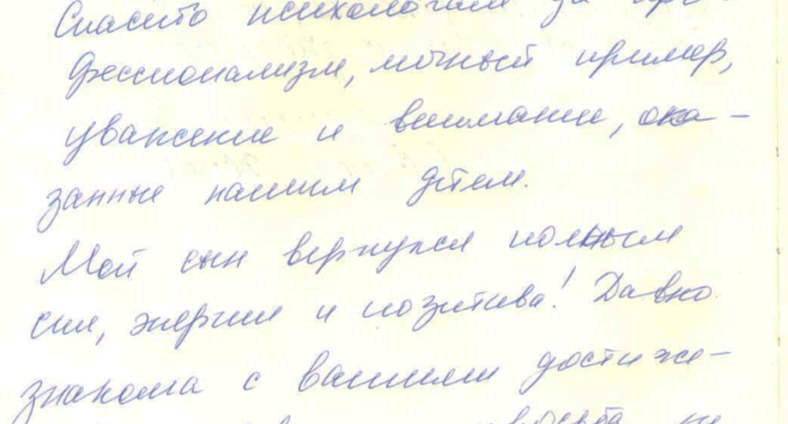 Спасибо психологам за про-
фессионализм, личный пример,
уважение и внимание, ока-
занные нашим детям.
Мой сын вернулся полным
сил, энергии и позитива! Давно
знакома с вашими достиже-
не